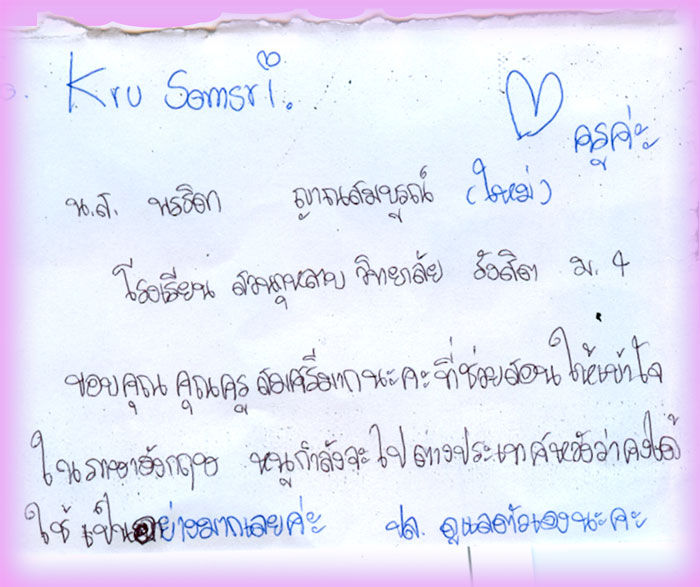 Kru Somsri.
ครูค่ะ
น.ส. นรธิดา ญาณสมบูรณ์ (ใหม่)
โรงเรียน สวนกุหลาบ วิทยาลัย รังสิต ม. 4
ขอบคุณ คุณครู สมศรีมากนะคะที่ช่วยสอน ให้เข้าใจ
ในภาษาอังกฤษ หนูกำลังจะไป ต่างประเทศหวังว่าคงได้
ใช้ เป็นอย่างมากเลยค่ะ ปล. ดูแลตัวเองนะคะ